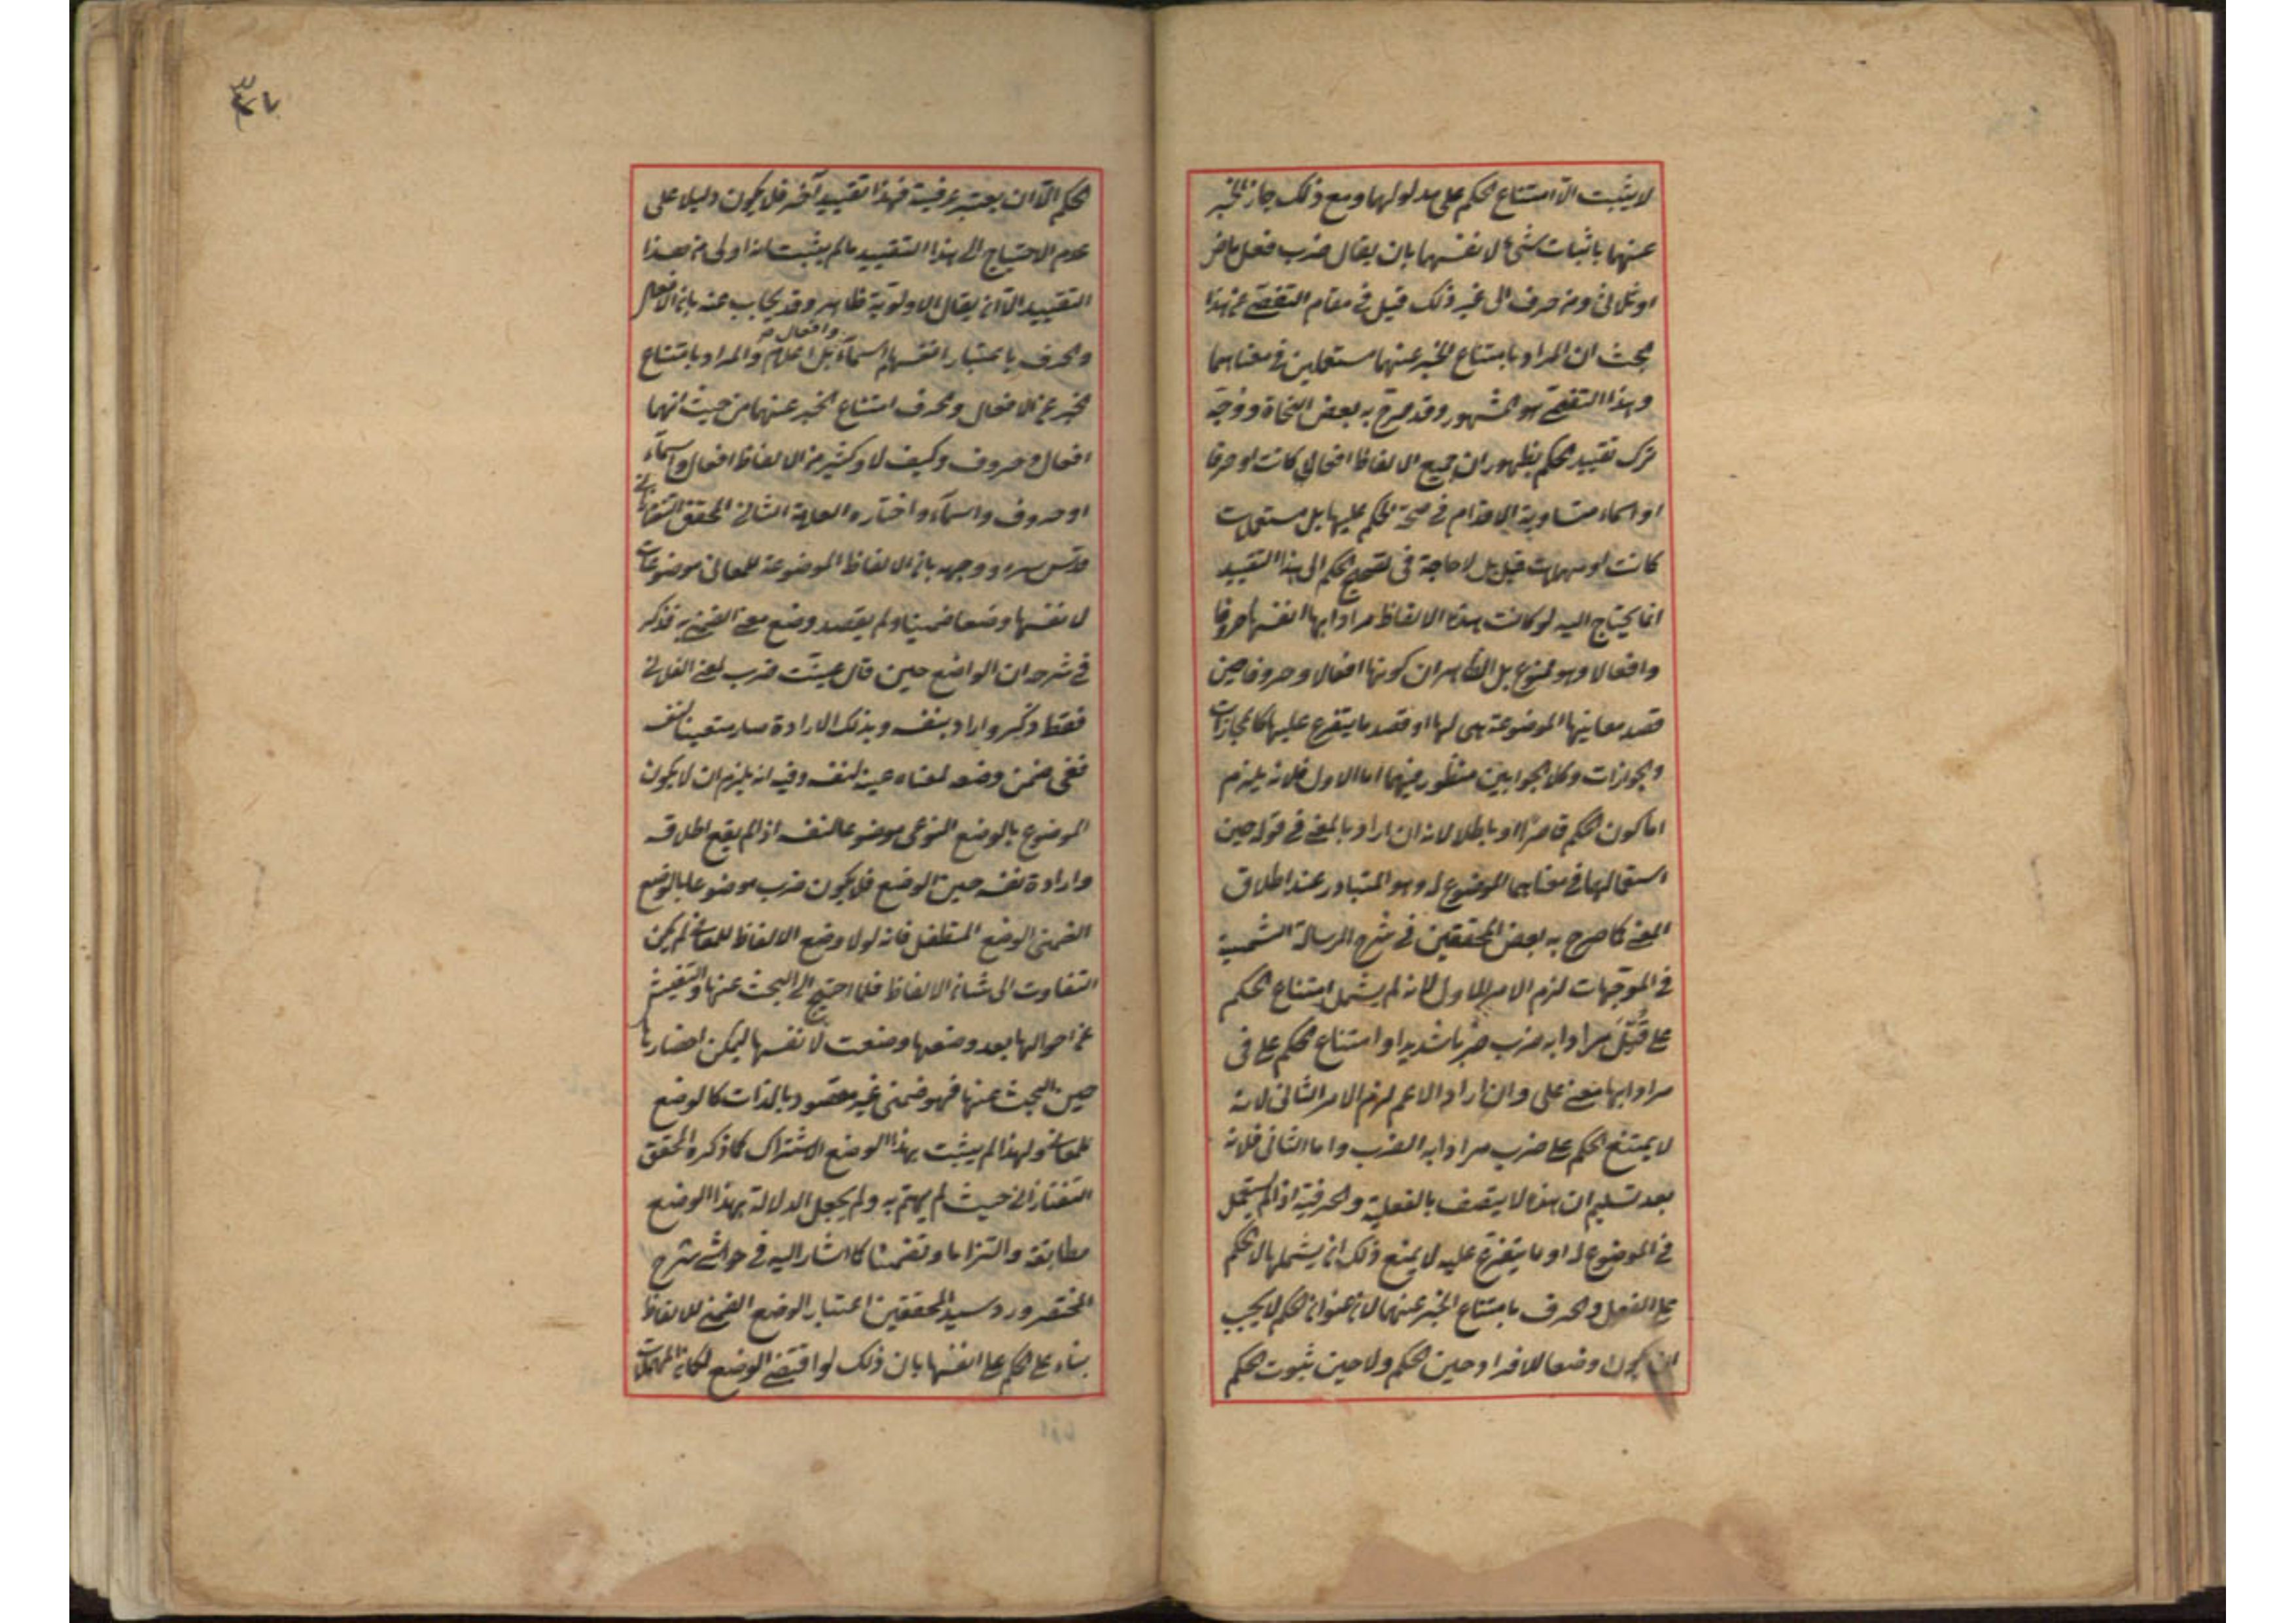 لا يثبت الا امتناع الحكم على مدلولها ومع ذلك جاز الخبر
عنهما باثبات شئ لا نفسهما بان يقال ضرب فعل ماض
او ثلاثى ومن حرف الى غير ذلك قيل فى مقام التفصى عن هذا
البحث ان المراد بامتناع الخبر عنهما مستعملين فى معناهما
وهذا التفصى هو المشهور وقد صرح به بعض النحاة ووجه
ترك تقييد الحكم بظهور ان جميع الالفاظ افعالا كانت او حرفا
او اسماء متساوية الاقدام فى صحة الحكم عليها بل مستعملات
كانت او مهملات قيل بل لا حاجة فى تصحيح الحكم الى هذا التقييد
انما يحتاج اليه لو كانت هذه الالفاظ مرادا بها انفسها حروفا
وافعالا وهو ممنوع بل الظاهر ان كونها افعالا وحروفا حين
قصد معانيها الموضوعة هى لها او قصد ما يتفرع عليها كالمجازات
والجوازات وكلا الجوابين منظور فيهما اما الاول فلانه يلزم
اما كون الحكم قاصرا او باطلا لانه ان اراد بالمعنى فى قوله حين
استعمالها فى معناهما الموضوع له وهو المتبادر عند اطلاق
المعنى كما صرح به بعض المحققين فى شرح الرسالة الشمسية
فى الموجهات لزم الامر الاول لانه لم يشمل امتناع الحكم
على قُتِلَ مرادا به ضرب ضربا شديدا وامتناع الحكم على فى
مرادا بها معنى على وان اراد الاعم لزم الامر الثانى لانه
لا يمتنع الحكم على ضرب مرادا به الضرب واما الثانى فلانه
بعد تسليم ان هذه لا يتصف بالفعلية والحرفية اذا لم يستعمل
فى الموضوع له او ما يتفرع عليه لا يمنع ذلك ان يشملها الحكم
على الفعل والحرف بامتناع الخبر عنهما لان عنوان الحكم لا يجب
ان يكون وصفا للافراد حين الحكم ولا حين ثبوت الحكم
الحكم الا ان يعتبر عرفية فهذا تقييد آخر فلا يكون دليلا على
عدم الاحتياج الى هذا التقييد ما لم يثبت انه اولى من هذا
التقييد الا ان يقال الاولوية ظاهر وقد يجاب عنه بان الافعال
والحرف باعتبار انفسها اسماء بل اعلام والمراد بامتناع
الخبر عن الافعال والحرف امتناع الخبر عنهما من حيث انهما
افعال وحروف وكيف لا وكثير من الالفاظ افعال واسماء
او حروف واسماء واختاره العلامة الثانى المحقق التفتازانى
قدس سره ووجهه بان الالفاظ الموضوعة للمعانى موضوعات
لانفسها وضعا ضمنيا ولم يقصد وضع معنى الضمنى به فذكر
فى شرحه ان الواضع حين قال عينت ضرب لمعنى الفلانى
فقط ذكره واراد بنفسه وبذلك الارادة صار متعينا لنفسه
ففى ضمن وضعه لمعناه عينه لنفسه وفيه انه يلزم ان لا يكون
الموضوع بالوضع النوعى موضوعا لنفسه اذ لم يقع اطلاقه
وارادة نفسه حين الوضع فلا يكون ضرب موضوعا بالوضع
الضمنى الوضع المتطفل فانه لولا وضع الالفاظ للمعانى لم يكن
التفاوت الى شان الالفاظ فلما احتيج الى البحث عنها والتفتيش
عن احوالها بعد وضعها وضعت لانفسها ليمكن احضارها
حين البحث عنها فهو ضمنى غير مقصود بالذات كالوضع
للمعانى ولهذا لم يثبت بهذا الوضع الاشتراك كما ذكره المحقق
التفتازانى حيث لم يهتم به ولم يجعل الدلالة بهذا الوضع
مطابقة والتزاما وتضمنا كما اشار اليه فى حواشى شرح
المختصر ورد سيد المحققين اعتبار الوضع الضمنى للالفاظ
بناء على الحكم على انفسها بان ذلك لو اقتضى الوضع لكان المهملات